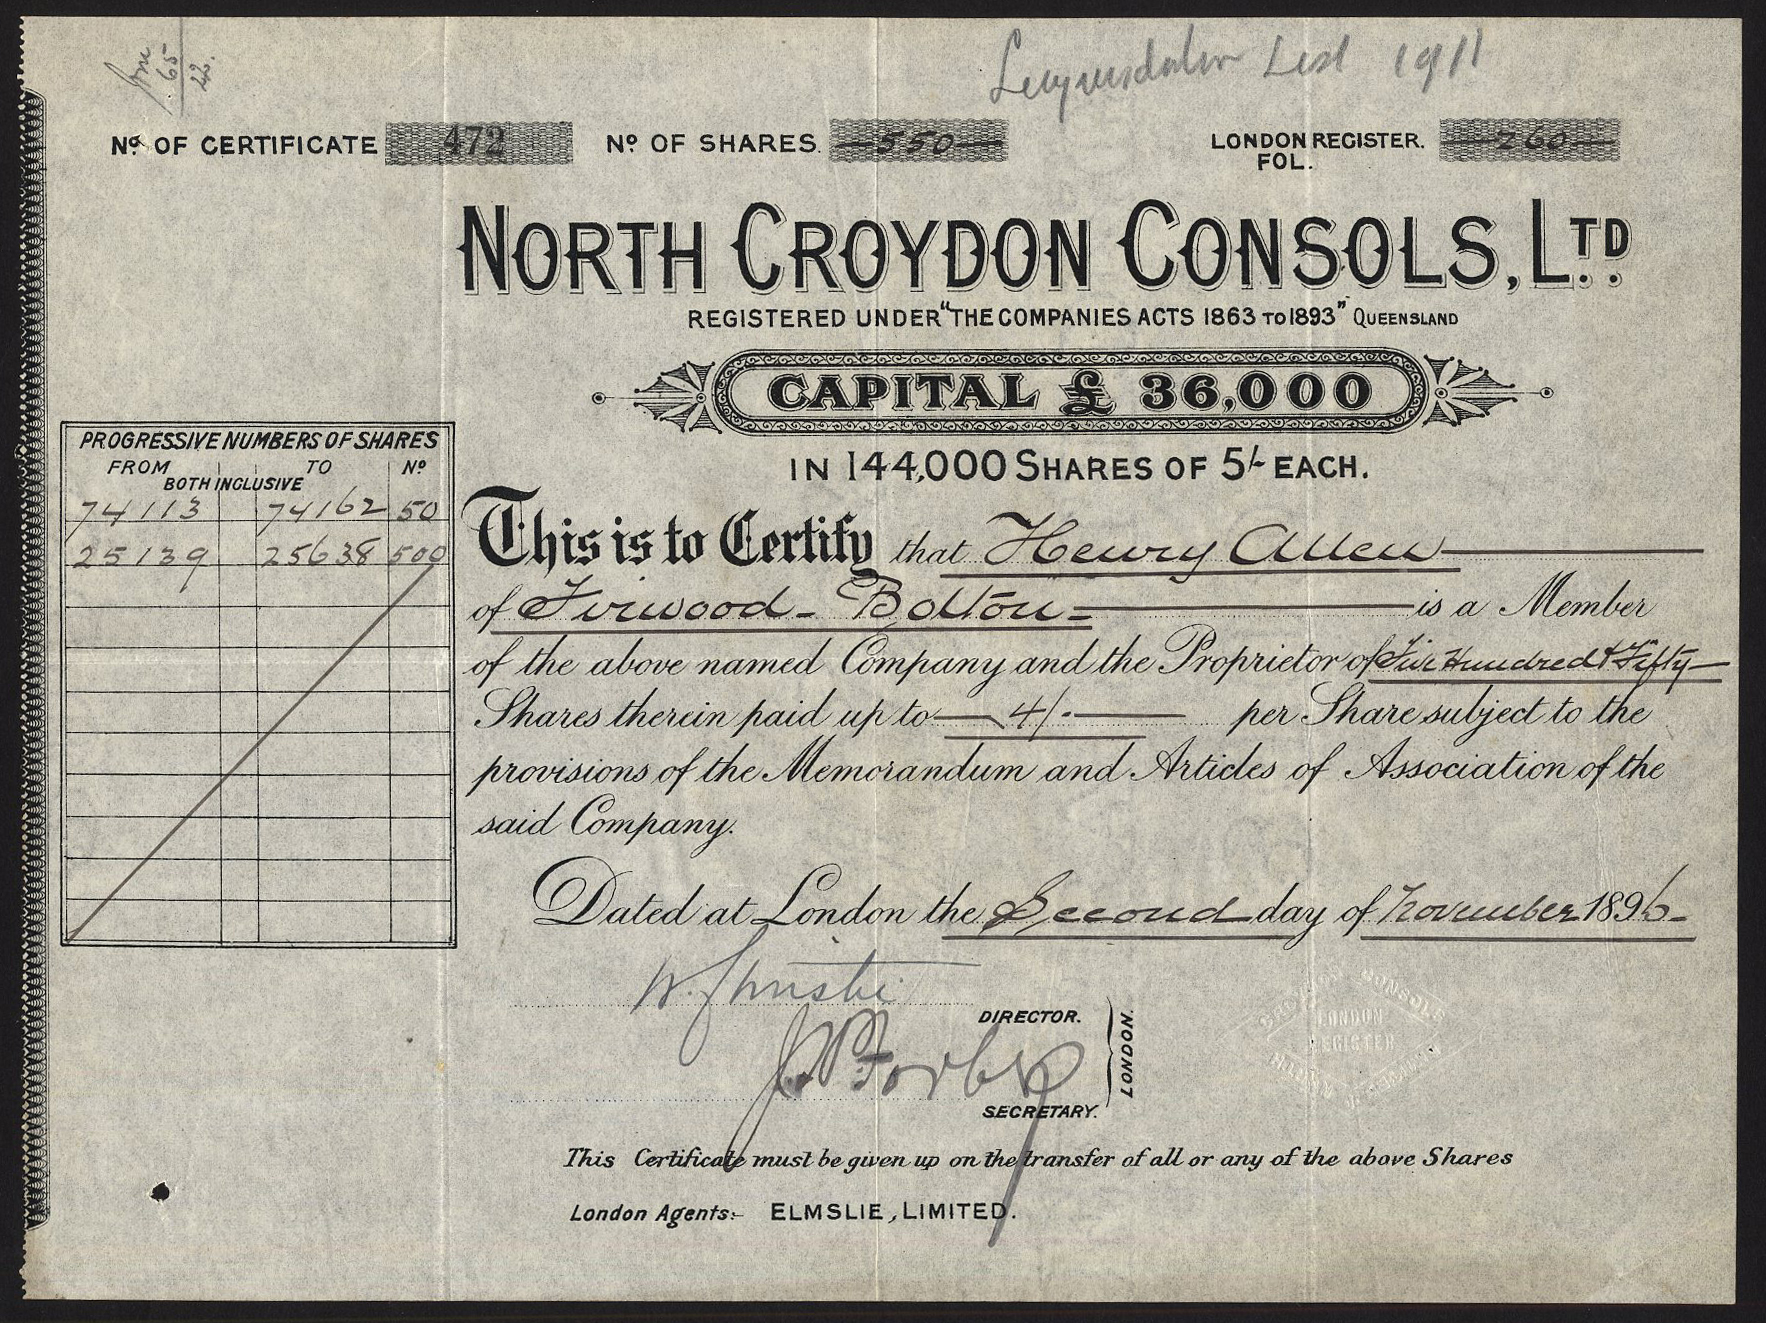 List 1911
No. OF CERTIFICATE 472 No. OF SHARES. 550 LONDON REGISTER. FOL. 260
NORTH CROYDON CONSOLS, LTD.
REGISTERED UNDER "THE COMPANIES ACTS 1863 TO 1893" QUEENSLAND
CAPITAL £ 36,000
IN 144,000 SHARES OF 5/- EACH.
PROGRESSIVE NUMBERS OF SHARES
FROM TO No
BOTH INCLUSIVE
74113 74162 50
25139 25638 500
This is to Certify that Henry Allen
of Firwood - Bolton is a Member
of the above named Company and the Proprietor of Five Hundred & Fifty
Shares therein paid up to 4/- per Share subject to the
provisions of the Memorandum and Articles of Association of the
said Company.
Dated at London the Second day of November 1896
DIRECTOR.
J. Forbes
SECRETARY.
LONDON.
CROYDON CONSOLS
LONDON
REGISTER
This Certificate must be given up on the transfer of all or any of the above Shares
London Agents:- ELMSLIE, LIMITED.